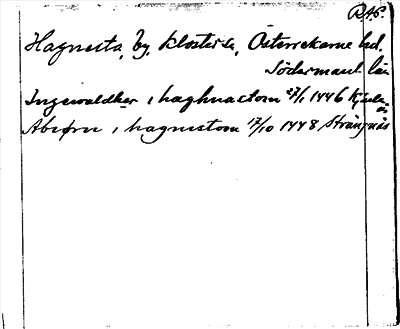 RAP.
Hagnesta, by, Klosters, Österrekarne hd.
Södermanl. län
Ingewaldher, i haghnastom 27/1 1446
Abiørn, i hagnestom 17/10 1448 Strängnäs